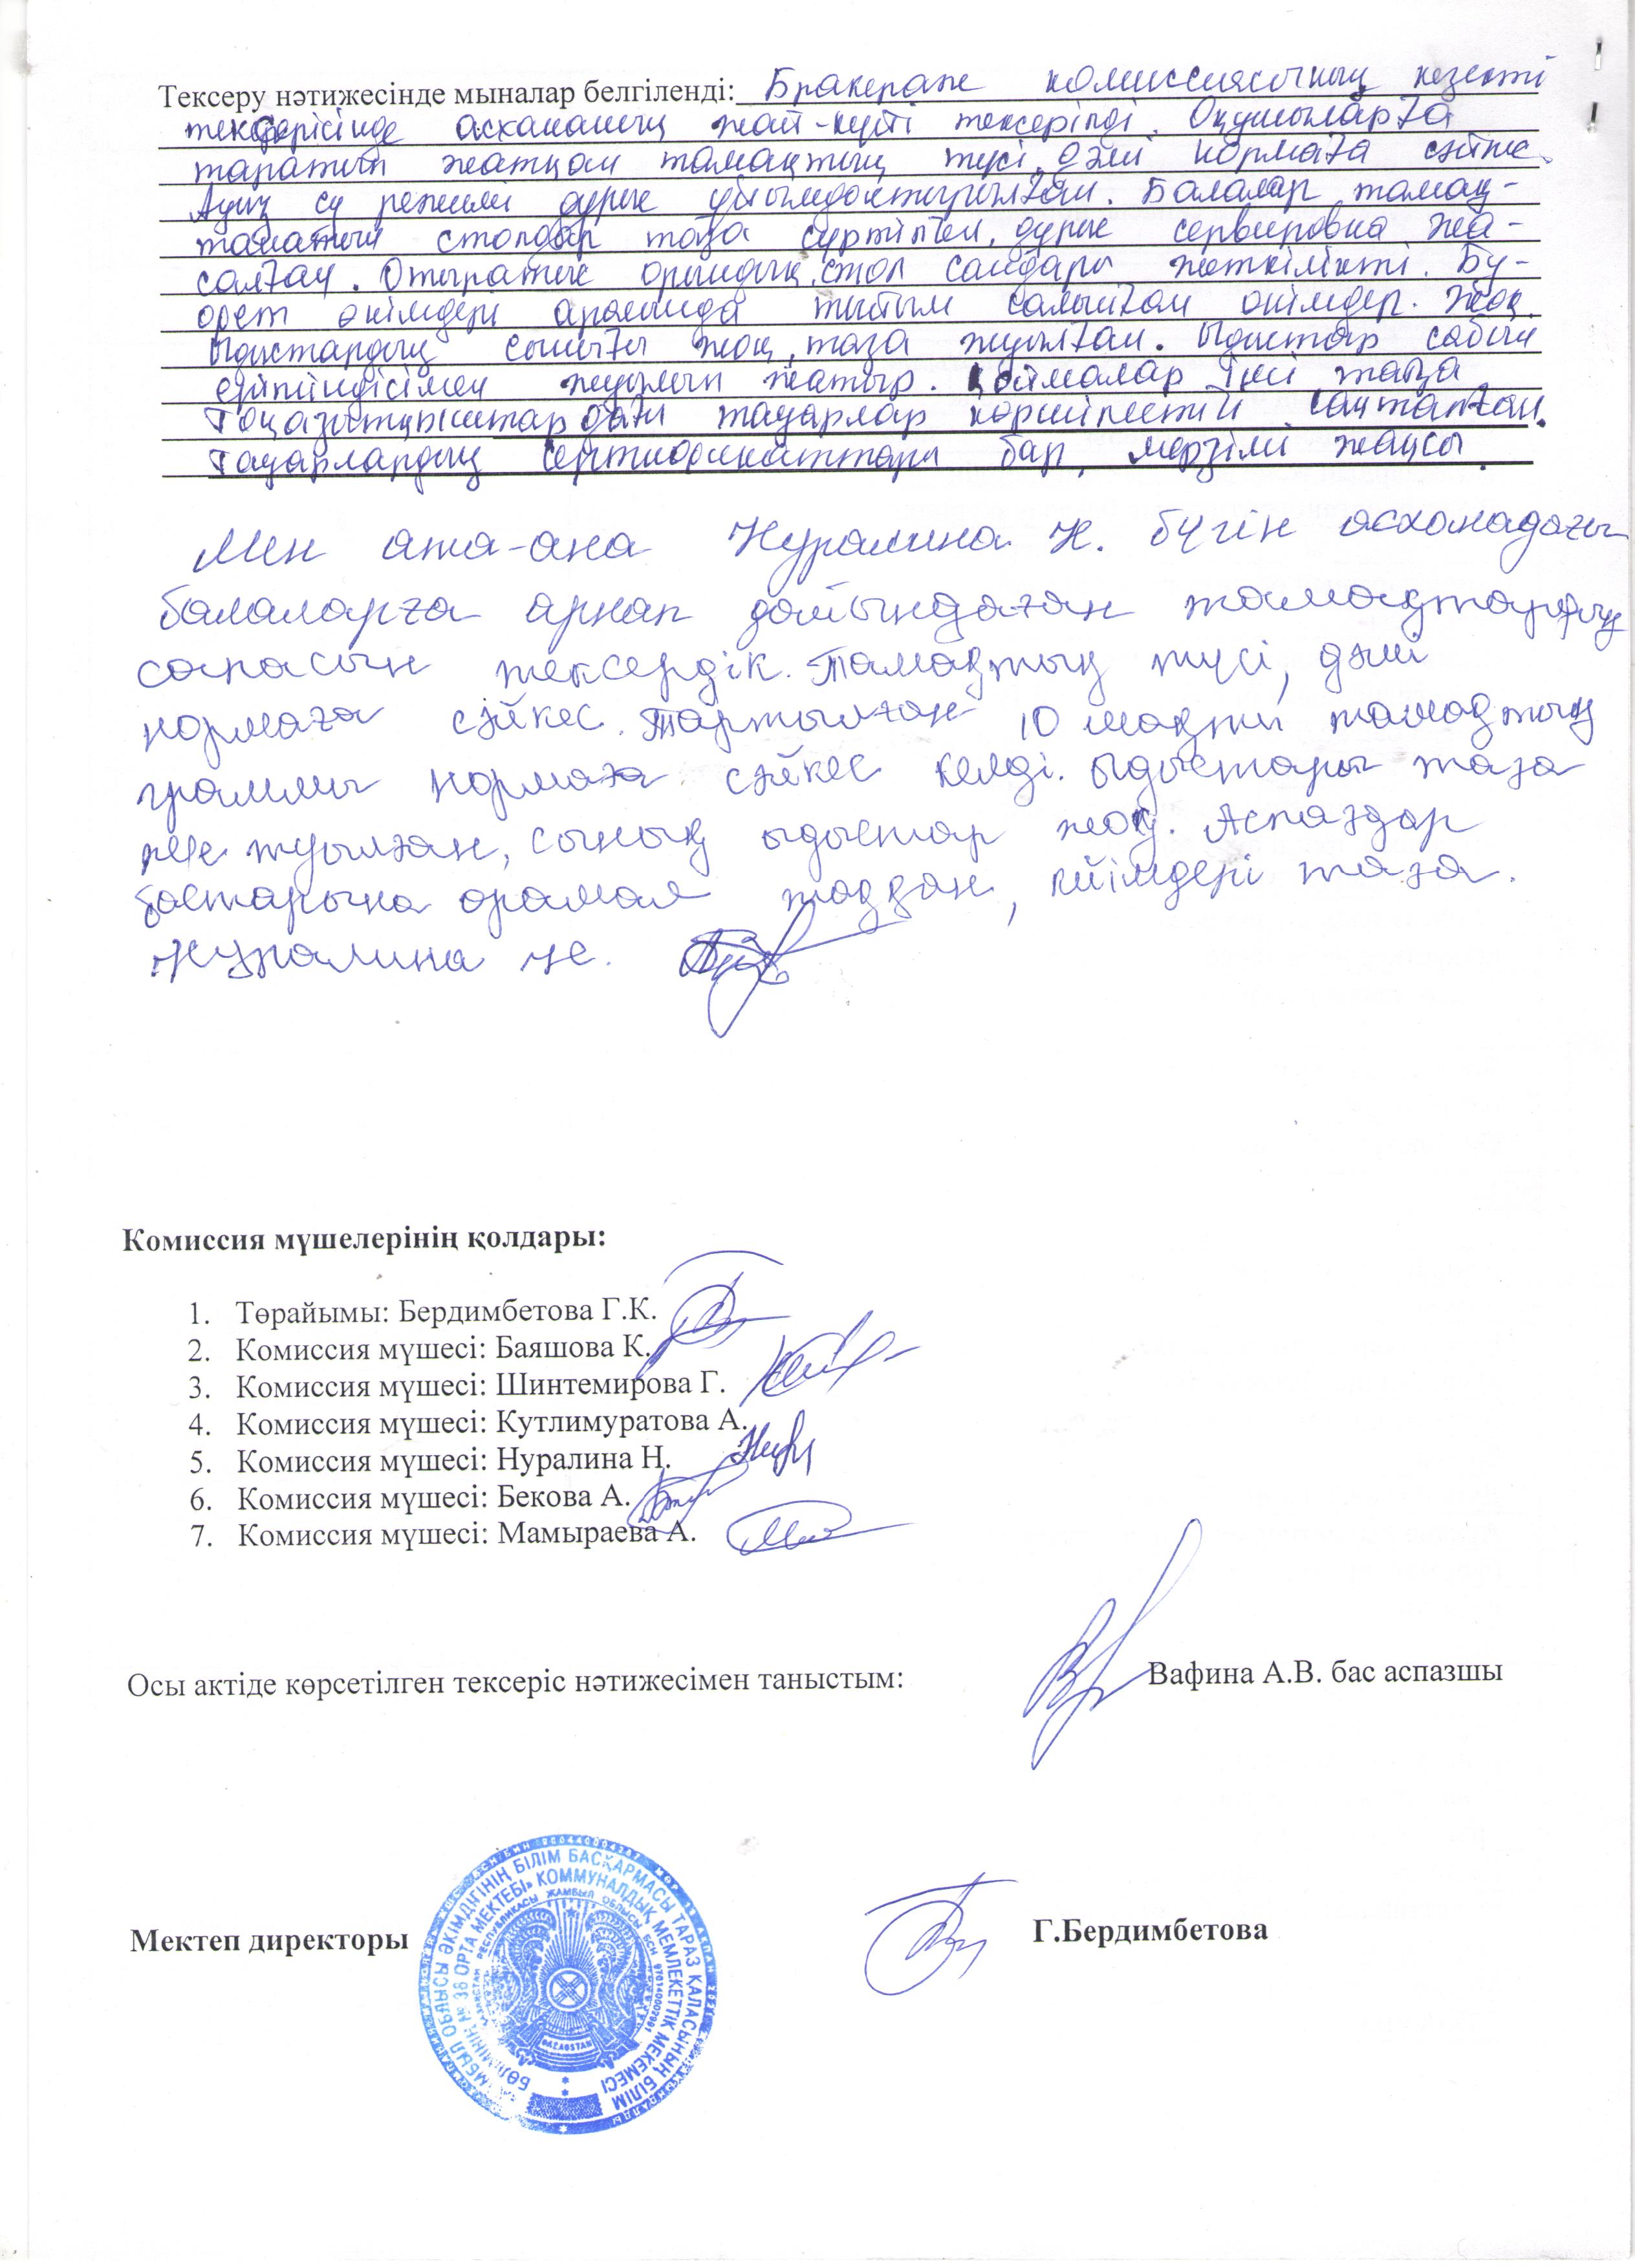 Тексеру нәтижесінде мыналар белгіленді: Бракераж комиссиясының кезекті
тексерісінде асхананың жай-күйі тексерілді. Оқушыларға
таратып жатқан тамақтың түсі, дәмі нормаға сәйкес.
Ауыз су режимі дұрыс ұйымдастырылған. Балалар тамақ-
танатын столдар таза сүртілген, дұрыс сервировка жа-
салған. Отыратын орындық, стол сандары жеткілікті. Бу-
фет өнімдері арасында тыйым салынған өнімдер жоқ.
Ыдыстардың сынығы жоқ, таза жуылған. Ыдыстар сабын
ерітіндісімен жуылып жатыр. Қоймалар іші таза
Тоңазытқыштардағы тауарлар көршілестігі сақталған.
Тауарлардың сертификаттары бар, мерзімі жақсы.
Мен ата-ана Нуралина Н. бүгін асханадағы
балаларға арнап дайындаған тамақтардың
сапасын тексердік. Тамақтың түсі, дәмі
нормаға сәйкес. Тартылған 10 тамақтың
граммы нормаға сәйкес келді. Ыдыстары таза
жуылған, сынық ыдыстар жоқ. Аспаздар
бастарына орамал таққан, киімдері таза.
Нуралина Н.
Комиссия мүшелерінің қолдары:
1. Төрайымы: Бердимбетова Г.К.
2. Комиссия мүшесі: Баяшова К.
3. Комиссия мүшесі: Шинтемирова Г.
4. Комиссия мүшесі: Кутлимуратова А.
5. Комиссия мүшесі: Нуралина Н.
6. Комиссия мүшесі: Бекова А.
7. Комиссия мүшесі: Мамыраева А.
Осы актіде көрсетілген тексеріс нәтижесімен таныстым: Вафина А.В. бас аспазшы
Мектеп директоры Г.Бердимбетова
ОБЛЫСЫ ӘКІМДІГІНІҢ БІЛІМ БАСҚАРМАСЫ ТАРАЗ ҚАЛАСЫНЫҢ БІЛІМ
№ 38 ОРТА МЕКТЕБІ» КОММУНАЛДЫҚ МЕМЛЕКЕТТІК МЕКЕМЕСІ
РЕСПУБЛИКАСЫ ЖАМБЫЛ ОБЛЫСЫ
QAZAQSTAN